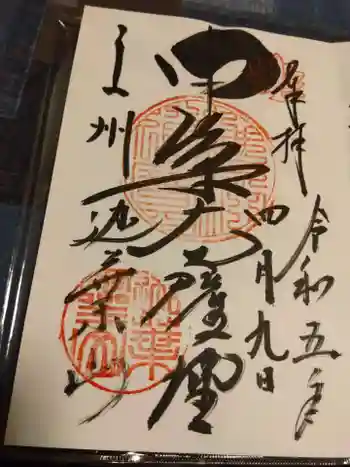 奉拝
令和五年
四月九日
中峯大薩埵
上州迦葉山